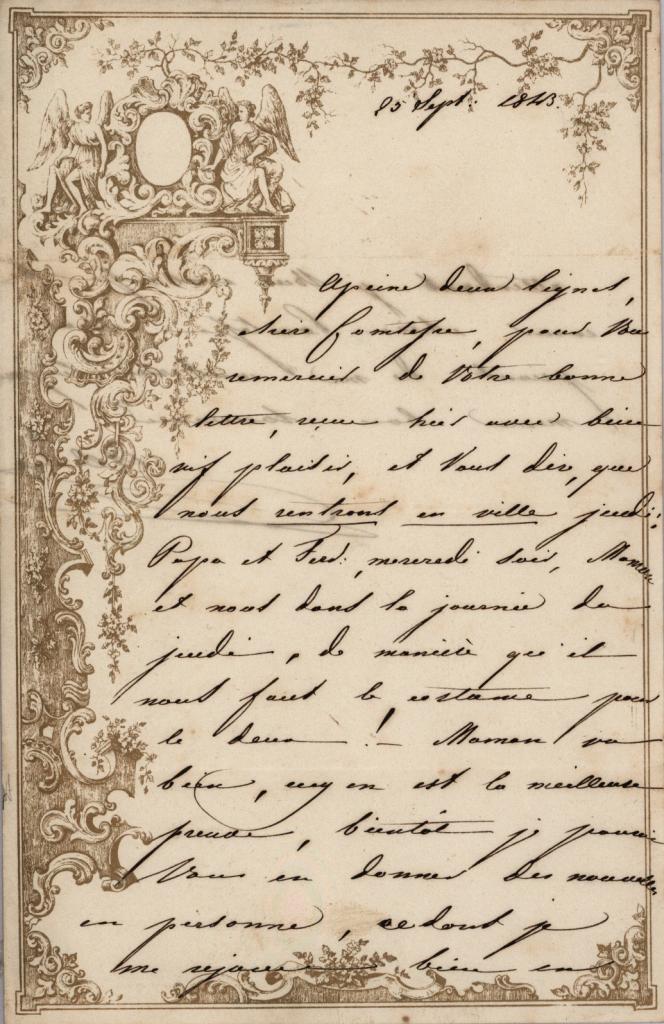 25 Sept: 1843.
Apeine deux lignes,
chère Comtesse, pour Vous
remercier de Votre bonne
lettre, reçue hier avec bien
vif plaisir, et Vous dire, que
nous rentrons en ville jeudi:
Papa et Ferd: mercredi soir, Maman
et nous dans la journée du
jeudi, de manière qu'il
nous faut le costume pour
le deux! – Maman va
bien, en est la meilleure
preuve, bientôt je pourrai
Vous en donner des nouvelles
en personne, ce dont je
me réjouis bien en